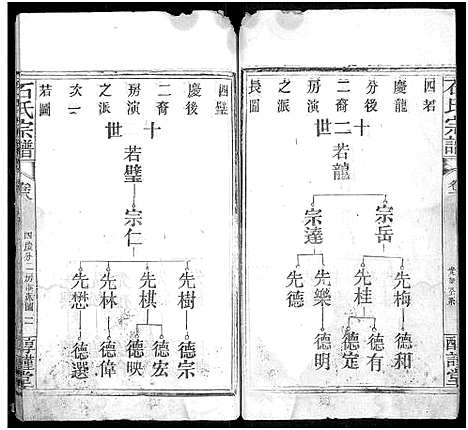 石氏宗譜
卷
四若
慶龍
二裔
房演
之派
長圖
十二世
若龍
宗岳
宗達
先梅
先桂
先樂
先德
德和
德有
德定
德明
四璧
慶後
二裔
房演
之派
次一
若圖
十二世
若璧
宗仁
先樹
先棋
先林
先懋
德宗
德宏
德映
德偉
德選
石氏宗譜
卷八
四慶分二房
堂